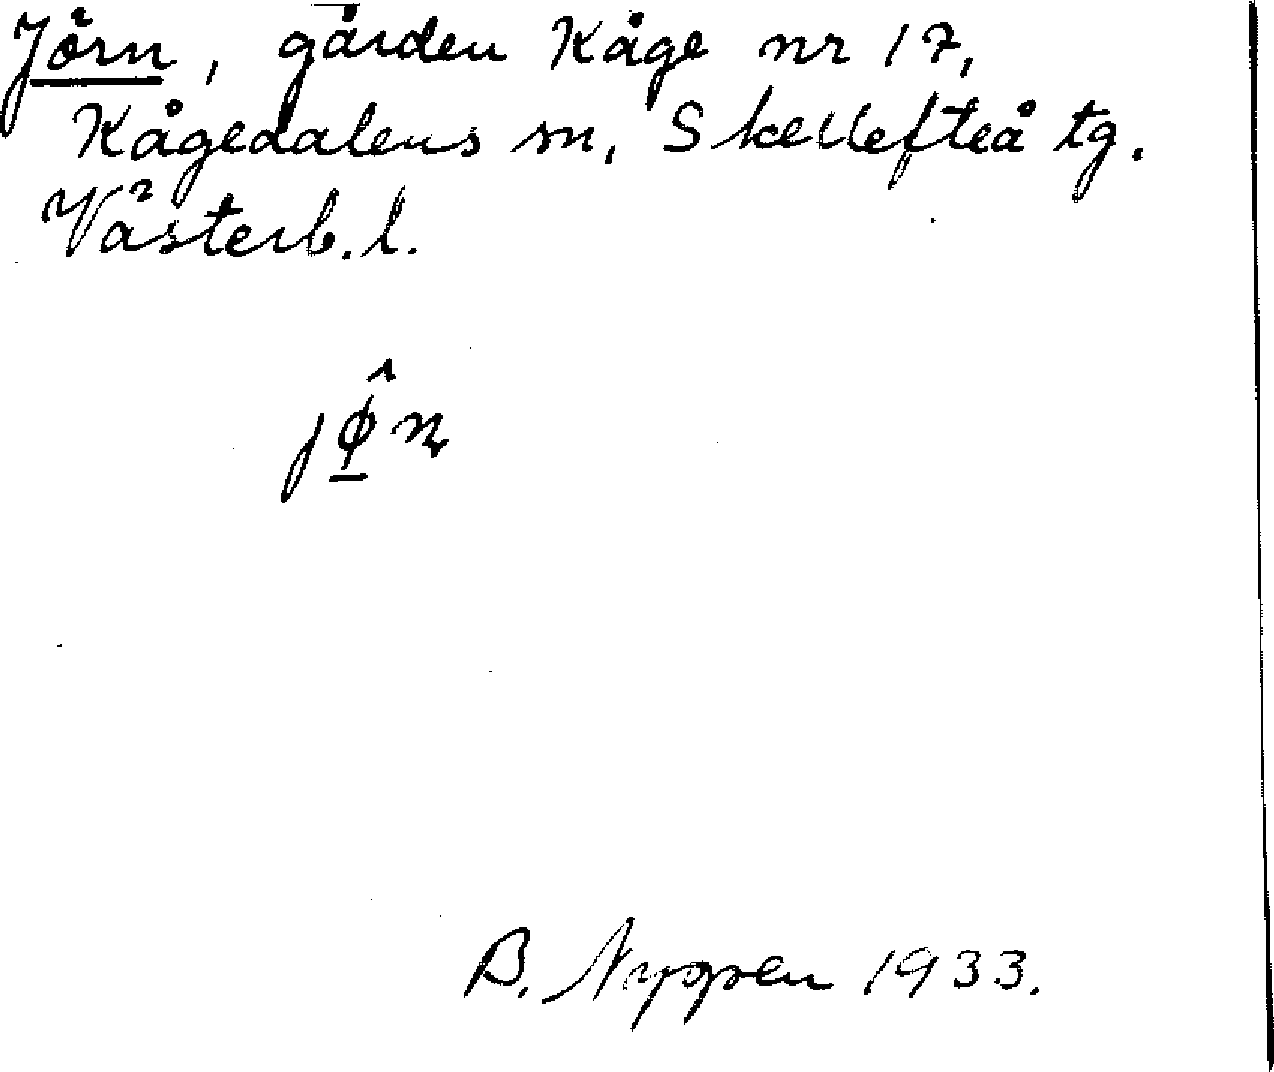 Jörn, gården Kåge nr 17,
Kågedalens sn, Skellefteå tg.
Västerb. l.
jø̲̂ɳ
B. Nygren 1933.